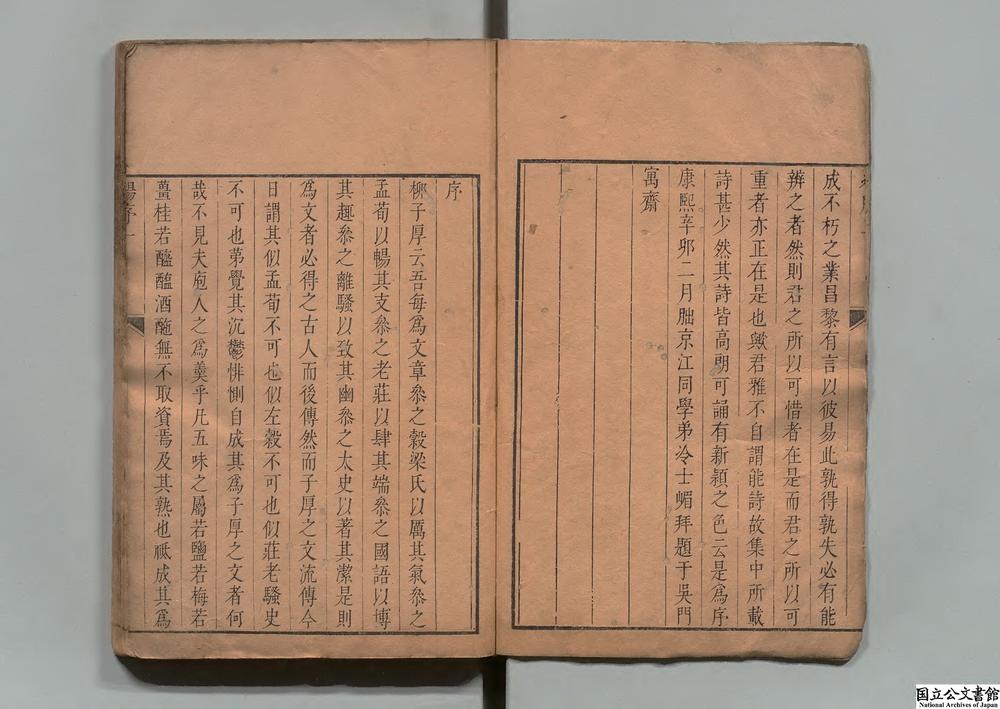 成不朽之業昌黎有言以彼易此孰得孰失必有能
辨之者然則君之所以可惜者在是而君之所以可
重者亦正在是也歟君雅不自謂能詩故集中所載
詩甚少然其詩皆高朗可誦有新穎之色云是爲序
康熙辛卯二月朏京江同學弟冷士嵋拜題于吳門
寓齋
序
柳子厚云吾每爲文章叅之榖梁氏以厲其氣叅之
孟荀以暢其支叅之老莊以肆其端叅之國語以博
其趣叅之離騷以致其幽叅之太史以著其潔是則
爲文者必得之古人而後傳然而子厚之文流傳今
日謂其似孟荀不可也似左榖不可也似莊老騷史
不可也苐覺其沉鬱悱惻自成其爲子厚之文者何
哉不見夫庖人之爲羹乎凡五味之屬若鹽若梅若
薑桂若醯醢酒酏無不取資焉及其熟也祗成其爲
國立公文書館
National Archives of Japan